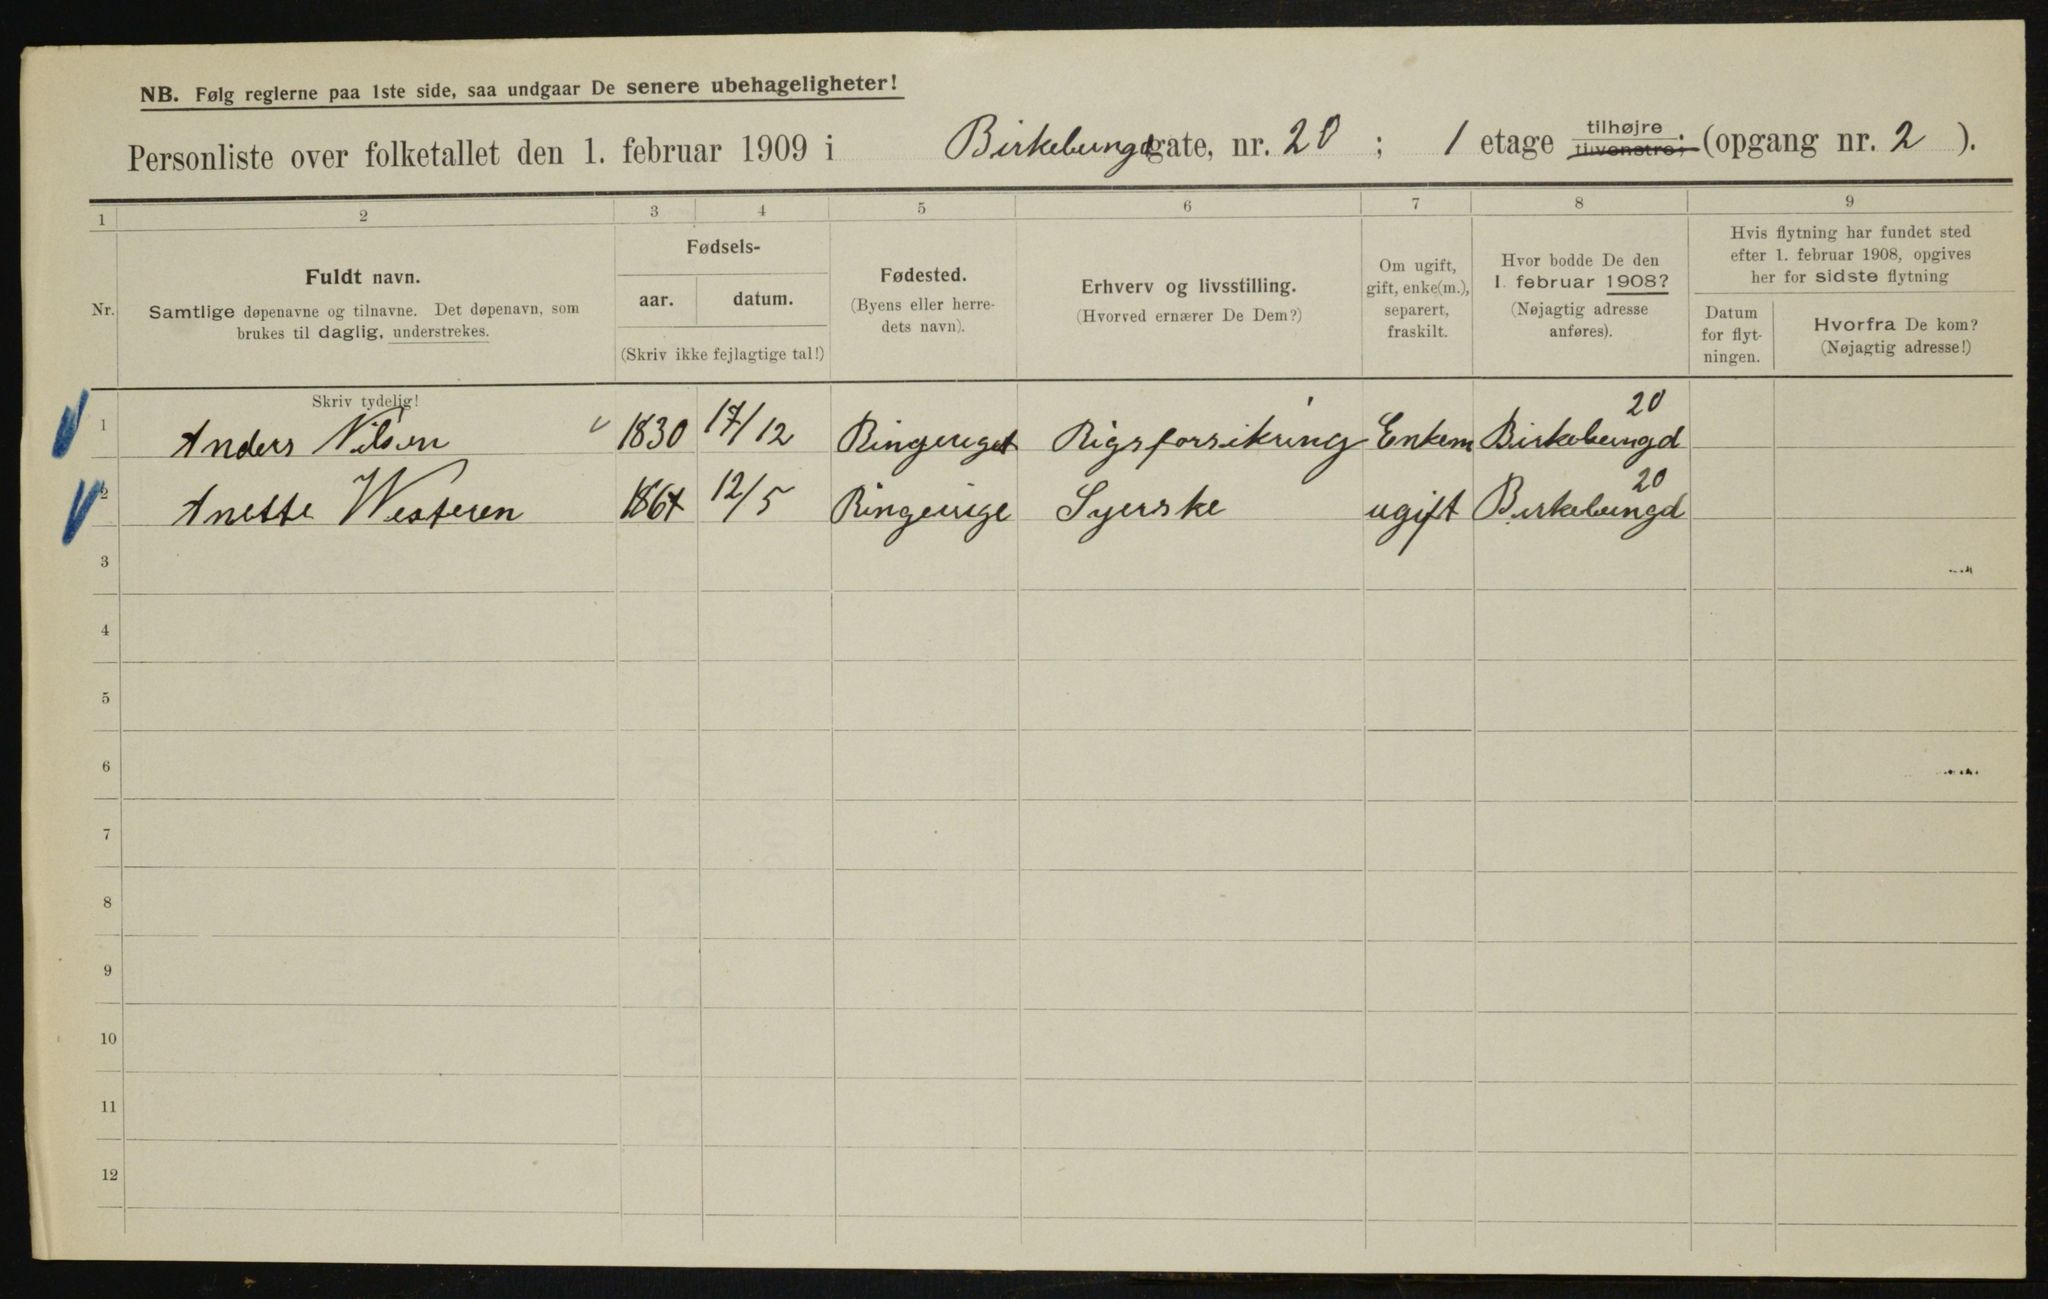 NB. Følg reglerne paa 1ste side, saa undgaar De senere ubehageligheter!
Personliste over folketallet den 1. februar 1909 i Birkebungdgate, nr. 20 ; 1 etage tilhøjre tilvenstre; (opgang nr. 2 ).
1 2 3 4 5 6 7 8 9
Nr.
Fuldt navn.
Samtlige døpenavne og tilnavne. Det døpenavn, som
brukes til daglig, understrekes.
Fødsels-
aar. datum.
(Skriv ikke fejlagtige tal!)
Fødested.
(Byens eller herre-
dets navn).
Erhverv og livsstilling.
(Hvorved ernærer De Dem?)
Om ugift,
gift, enke(m.),
separert,
fraskilt.
Hvor bodde De den
1. februar 1908?
(Nøjagtig adresse
anføres).
Hvis flytning har fundet sted
efter 1. februar 1908, opgives
her for sidste flytning
Datum
for flyt-
ningen.
Hvorfra De kom?
(Nøjagtig adresse!)
Skriv tydelig!
1 Anders Nilsen 1830 17/12 Ringeriget Rigsforsikring Enkem Birkebungd 20
2 Anette Westeren 1864 12/5 Ringerige Syerske ugift Birkebungd 20
3
4
5
6
7
8
9
10
11
12